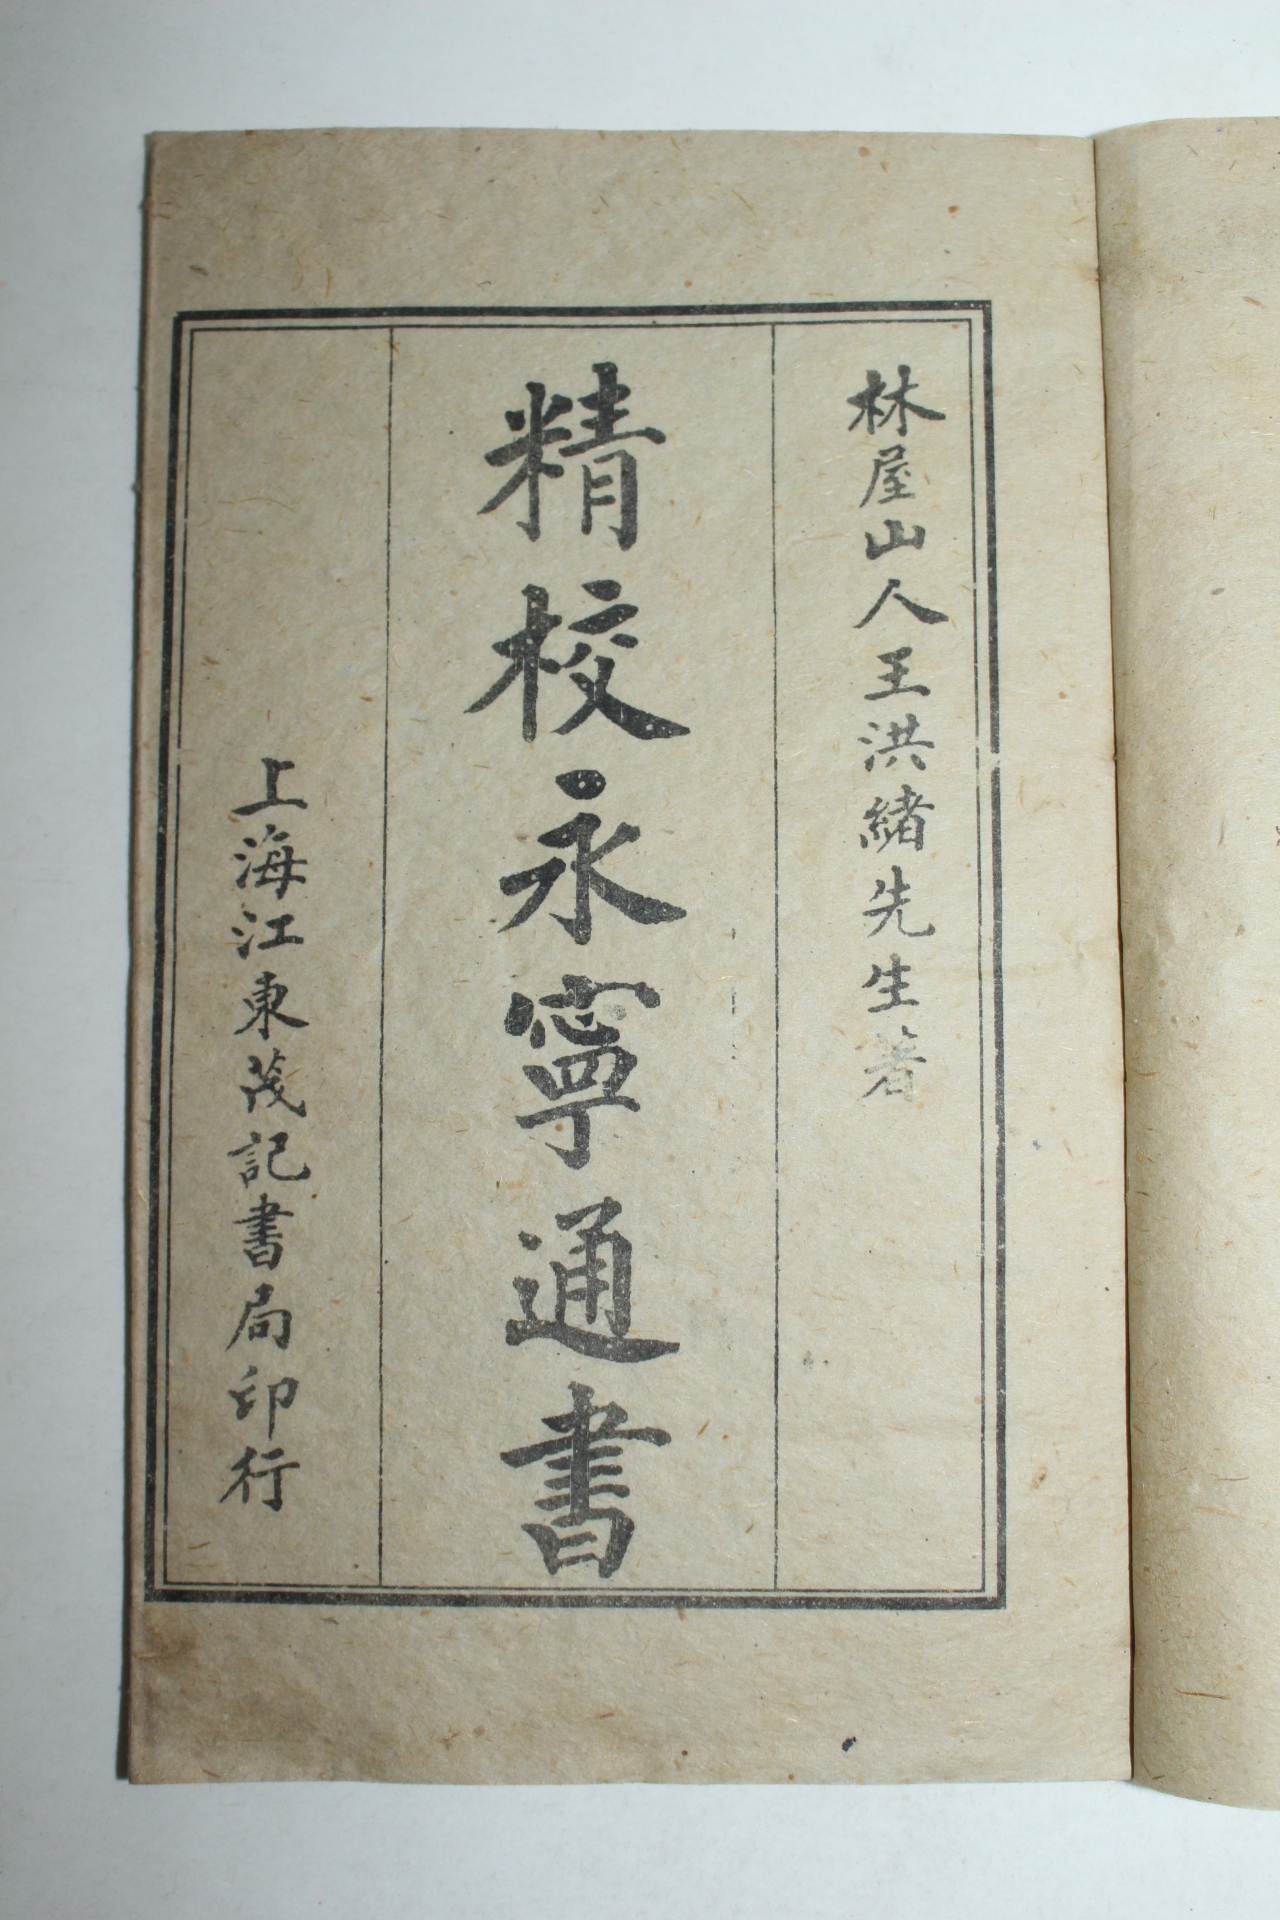 林屋山人王洪緒先生著
精校永寧通書
上海江東茂記書局印行